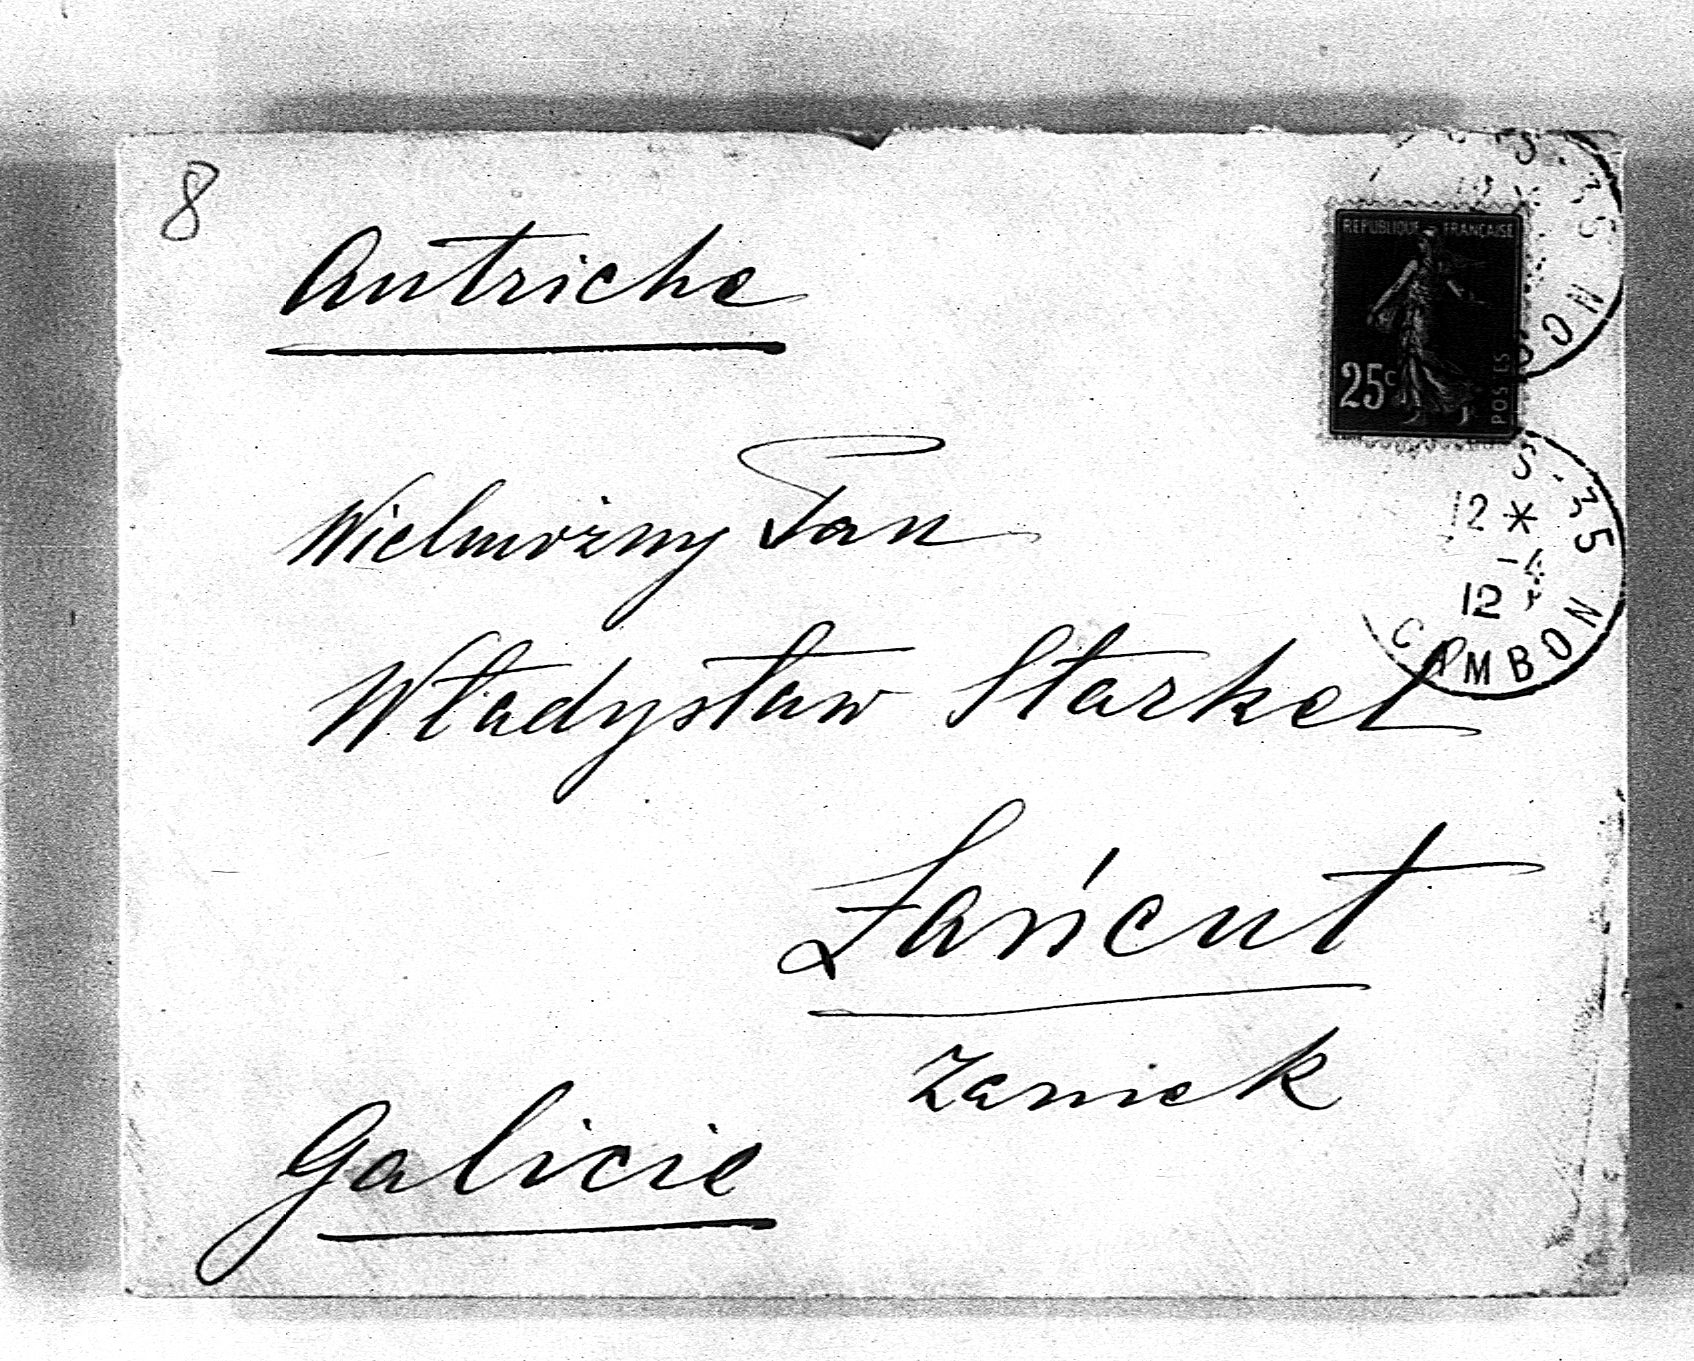 8
Autriche
REPUBLIQUE FRANÇAISE
25c
POSTES
S. 35
12 *
-4
12
CAMBON
Wielmożny Pan
Władysław Starkel
Łańcut
Zamek
Galicie